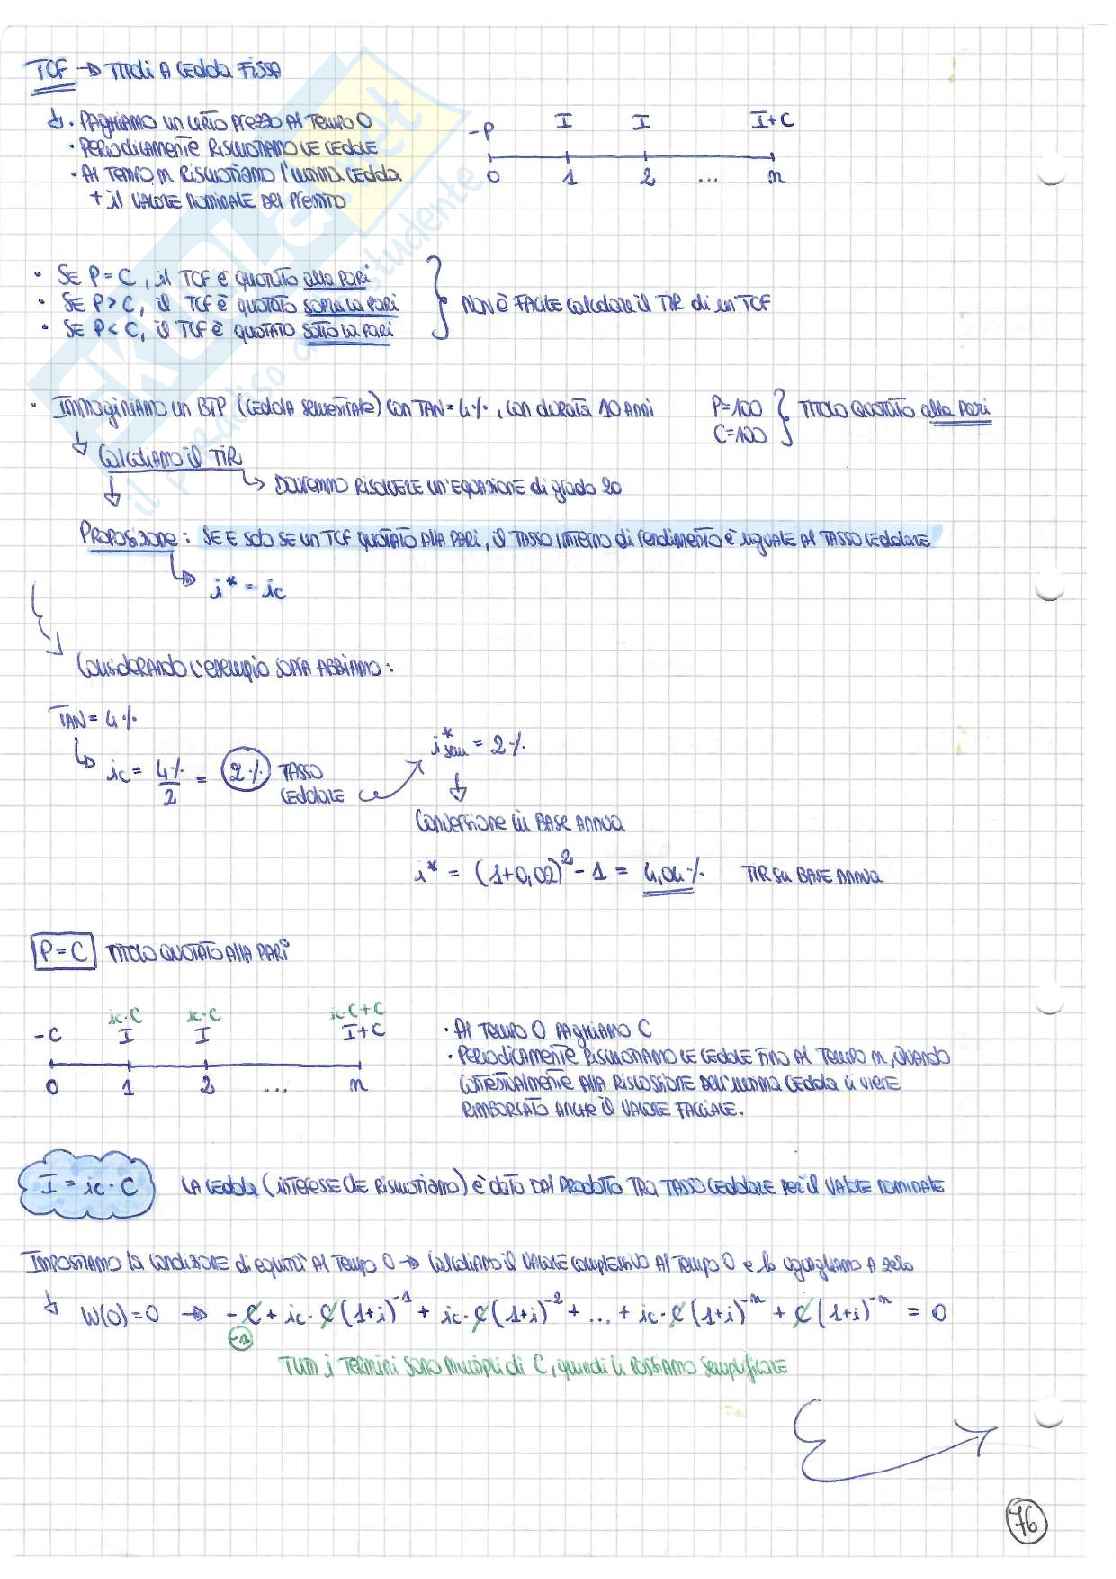 TCF → TITOLI A CEDOLA FISSA
↳ • PAGHIAMO UN CERTO PREZZO AL TEMPO 0
• PERIODICAMENTE RISCUOTIAMO LE CEDOLE
• AL TEMPO n RISCUOTIAMO L'ULTIMA CEDOLA
+ il VALORE NOMINALE DEL PRESTITO
-P I I I+C
0 1 2 ... n
• SE P = C, il TCF è QUOTATO alla PARI
• SE P > C, il TCF è QUOTATO SOPRA LA PARI
• SE P < C, il TCF è QUOTATO SOTTO LA PARI
NON è FACILE calcolare il TIR di un TCF
• IMMAGINIAMO un BTP (CEDOLA SEMESTRALE) con TAN = 4%, con durata 10 ANNI
P=100
C=100
TITOLO QUOTATO alla PARI
↳ Calcoliamo il TIR
↳ DOVREMMO RISOLVERE UN'EQUAZIONE di grado 20
PROPOSIZIONE: SE E solo SE un TCF QUOTATO ALLA PARI, il TASSO INTERNO di rendimento è uguale AL TASSO CEDOLARE
↳ i* = ic
CONSIDERANDO L'esempio SOPRA ABBIAMO:
TAN = 4%
↳ ic = 4%/2 = 2% TASSO CEDOLARE
i*sem = 2%
Conversione in BASE ANNUA
i* = (1+0,02)² - 1 = 4,04% TIR su BASE ANNUA
P = C TITOLO QUOTATO ALLA PARI
ic·C ic·C ic·C+C
-C I I I+C
0 1 2 ... n
• AL TEMPO 0 PAGHIAMO C
• PERIODICAMENTE RISCUOTIAMO LE CEDOLE FINO AL TEMPO n, QUANDO
CONTESTUALMENTE ALLA RISCOSSIONE DELL'ULTIMA CEDOLA ci VIENE
RIMBORSATO ANCHE il VALORE FACCIALE.
I = ic · C
LA CEDOLA (INTERESSE CHE RISCUOTIAMO) è dato DAL PRODOTTO TRA TASSO CEDOLARE PER il VALORE NOMINALE
IMPOSTIAMO la CONDIZIONE di equità AL TEMPO 0 → Calcoliamo il VALORE COMPLESSIVO AL TEMPO 0 e lo uguagliamo A zero
↳ W(0)=0 → -C + ic·C(1+i)⁻¹ + ic·C(1+i)⁻² + ... + ic·C(1+i)⁻ⁿ + C(1+i)⁻ⁿ = 0
-1
TUTTI i TERMINI SONO MULTIPLI di C, quindi li POSSIAMO semplificare
76
SKUOLA.net
il paradiso dello studente